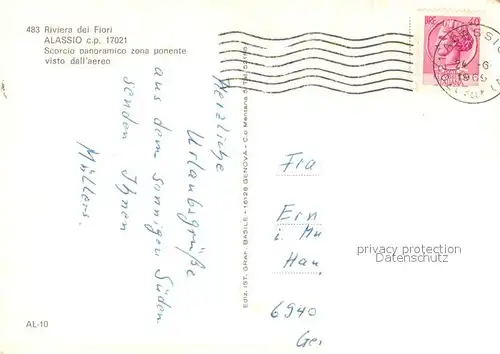 483 Riviera dei Fiori
ALASSIO c.p. 17021
Scorcio panoramico zona ponente
visto dall'aereo
Herzliche
Urlaubsgrüße
aus dem sonnigen Süden
senden Ihnen
Müllers.
Ediz. IST. GRAF. BASILE - 16128 GENOVA - C.so Mentana
LIRE 40
ALASSIO
-6
1969
Fra
Ern
i. Mu
Han
6940
Ge
privacy protection
Datenschutz
AL-10